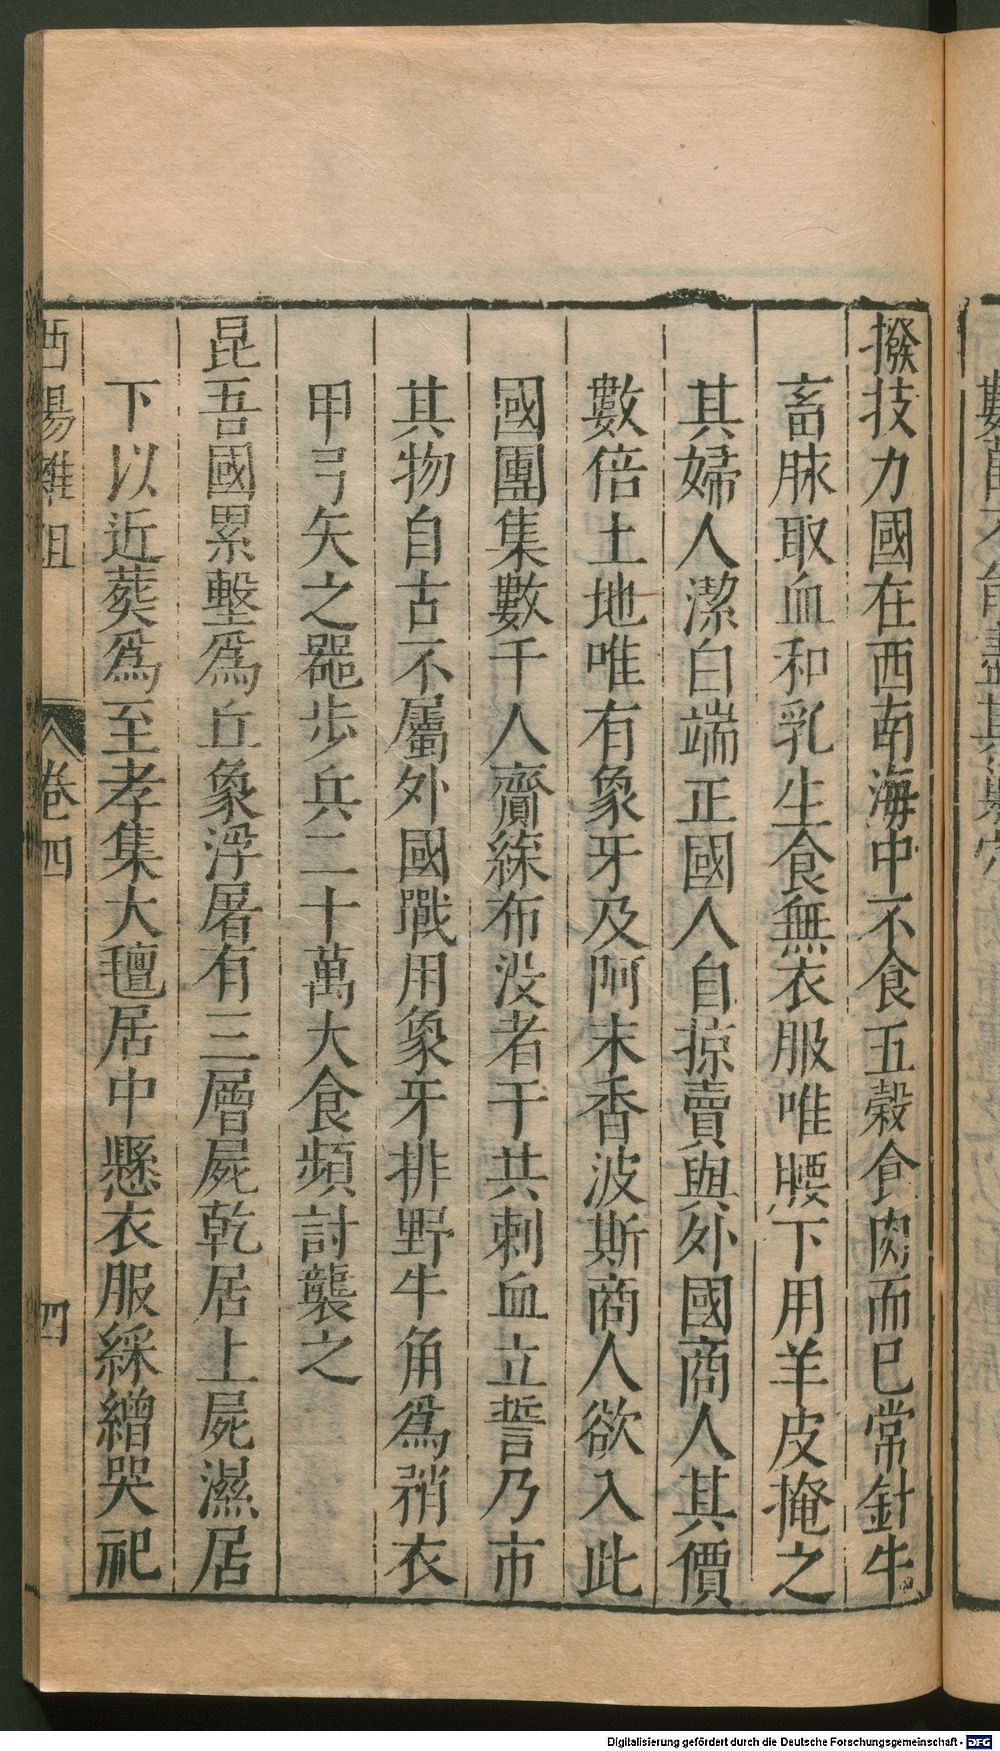 撥技力國在西南海中不食五穀食肉而已常針牛
畜脉取血和乳生食無衣服唯腰下用羊皮掩之
其婦人潔白端正國人自掠賣與外國商人其價
數倍土地唯有象牙及阿末香波斯商人欲入此
國團集數千人齎綵布没者于共刺血立誓乃市
其物自古不屬外國戰用象牙排野牛角爲矟衣
甲弓矢之器步兵二十萬大食頻討襲之
昆吾國累墼爲丘象浮屠有三層屍乾居上屍濕居
下以近葬爲至孝集大氊居中懸衣服綵繒哭祀
酉陽雜俎 卷四 四
Digitalisierung gefördert durch die Deutsche Forschungsgemeinschaft - DFG